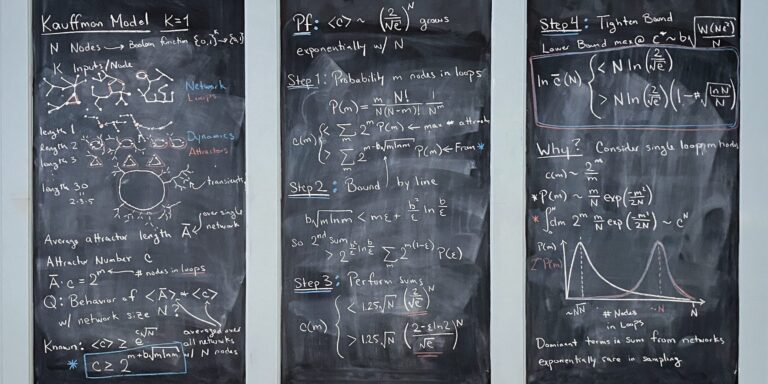 Kauffman Model K=1
N Nodes → Boolean function {0,1}^K → {0,1}
K Inputs/Node
Network
Loops
length 1
length 2
length 3
Dynamics
Attractors
length 30
2·3·5
transients
Average attractor length Ā
over single network
Attractor Number c
Ā·c = 2^m ← # nodes in loops
Q: Behavior of <Ā> + <c>
w/ network size N?
Known: <c> ≥ e^{c√N}
averaged over all networks w/ N nodes
* c ≥ 2^{m+b√m ln m}
Pf: <c> ~ (2/√e)^N grows
exponentially w/ N
Step 1: Probability m nodes in loops
P(m) = m/N N!/(N-m)! 1/N^m
c(m) { < Σ_m 2^m P(m) ← max # attractors
> Σ 2^{m-b√m ln m} P(m) ← From *
Step 2: Bound by line
b√m ln m < mε + b²/ε ln b/ε
so 2nd sum
> 2^{b²/ε ln b/ε} Σ_m 2^{m(1-ε)} P(ε)
Step 3: Perform sums
c(m) { < 1.25√N (2/√e)^N
> 1.25√N ((2-ε ln 2)/√e)^N
Step 4: Tighten Bound
Lower Bound max @ ε* ~ b√(W(Ne²)/N)
ln c̄(N) { < N ln(2/√e)
> N ln(2/√e)(1-#√(ln N/N))
Why? Consider single loop, m nodes
c(m) ~ 2^m/m
* P(m) ~ m/N exp(-m²/2N)
* ∫₀^N dm 2^m m/N exp(-m²/2N) ~ c^N
P(m)
2^m P(m)
~√N
# Nodes in Loops
~N
N
Dominant terms in sum from networks
exponentially rare in sampling